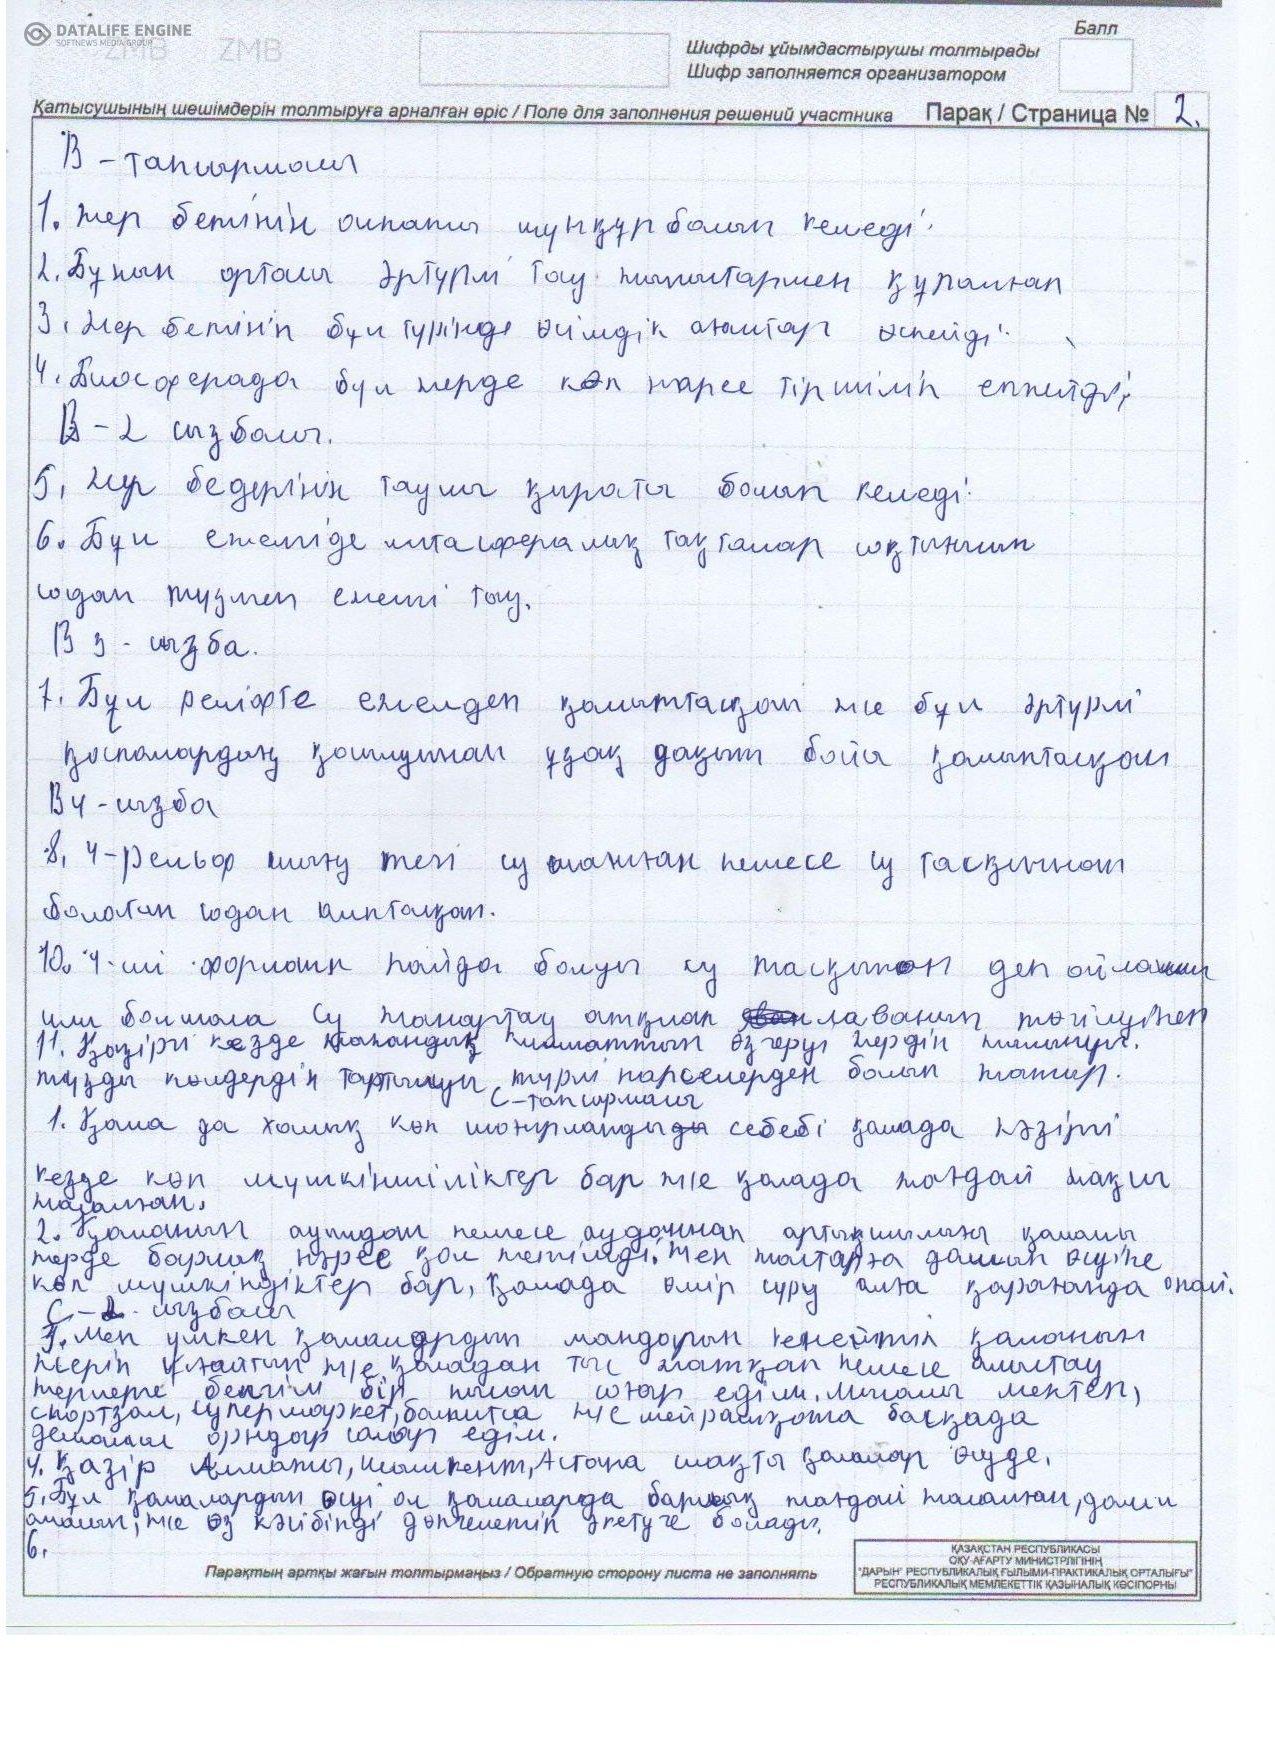 DATALIFE ENGINE
SOFTNEWS MEDIA GROUP
ZMB ZMB
Балл
Шифрды ұйымдастырушы толтырады
Шифр заполняется организатором
Қатысушының шешімдерін толтыруға арналған өріс / Поле для заполнения решений участника Парақ / Страница № 2.
В - тапсырмасы
1. Жер бетінің ойпаты шұңқұр болып келеді.
2. Бұның ортасы әртүрлі тау жыныстармен құралған
3. Жер бетінің бұл түрінде өсімдік ағаштар өспейді.
4. Биосферада бұл жерде көп нәрсе тіршілік етпейді.
В - 2 сызбасы.
5. Жер бедерінің таулы қыраты болып келеді.
6. Бұл ежелгіде литасфералық тақталар соқтығысып
содан түзілген ежелгі тау.
В 3 - сызба.
7. Бұл релифте ежелден қалыптасқан ж/е бұл әртүрлі
қоспалардың қосылуынан ұзақ уақыт бойы қалыптасқан
В 4 - сызба
8. 4-рельф шығу тегі су немесе су тасқынан
болатын содан қалыптасқан.
10. 4-ші формаың пайда болуы су тасқынан деп ойлаймын
или болмаса су жанартау атқылап лаваның төгілуінен
11. Қазіргі кезде климаттың өзгеруі жердің
тұзды көлдердің тартылуы түрлі нәрселерден болып жатыр.
С-тапсырмасы
1. Қала да халық көп шоғырланды себебі қалада қазіргі
кезде көп мүшкіншіліктер бар ж/е қалада жағдай жақсы
жасалған.
2. Қаланың ауылдан немесе ауданнан артықшылығы қалалы
жерде барлық нәрсе қол жетімді. Жен жастарға дамып өсуіне
көп мүшкіндіктер бар, Қалада өмір сүру алға қарағанда оңай.
С - 2 - сызбасы
3. Мен үлкен қалалардың маңдарын кеңейтіп қаланың
жерін ұлғайтып ж/е қаладан тыс жатқан немесе алыстау
жерлерге белгілі бір салар едім. Мысалы мектеп,
спортзал, супермаркет, больница ж/е мейрамхана басқада
демалыс орындар салар едім.
4. Қазір Алматы, Шымкент, Астана шақты қалалар өсуде.
5. Бұл қалалардың өсуі ол қалаларда барлық жағдай жасалған, дами
аласың, ж/е өз кәсібіңді дөңгелетіп әкетуге болады.
6.
Парақтың артқы жағын толтырмаңыз / Обратную сторону листа не заполнять
ҚАЗАҚСТАН РЕСПУБЛИКАСЫ
ОҚУ-АҒАРТУ МИНИСТРЛІГІНІҢ
"ДАРЫН" РЕСПУБЛИКАЛЫҚ ҒЫЛЫМИ-ПРАКТИКАЛЫҚ ОРТАЛЫҒЫ"
РЕСПУБЛИКАЛЫҚ МЕМЛЕКЕТТІК ҚАЗЫНАЛЫҚ КӘСІПОРНЫ